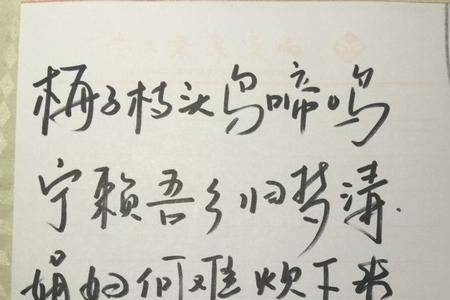 梅子枝头鸟啼鸣
宁赖吾乡归梦
妇何难炊下米